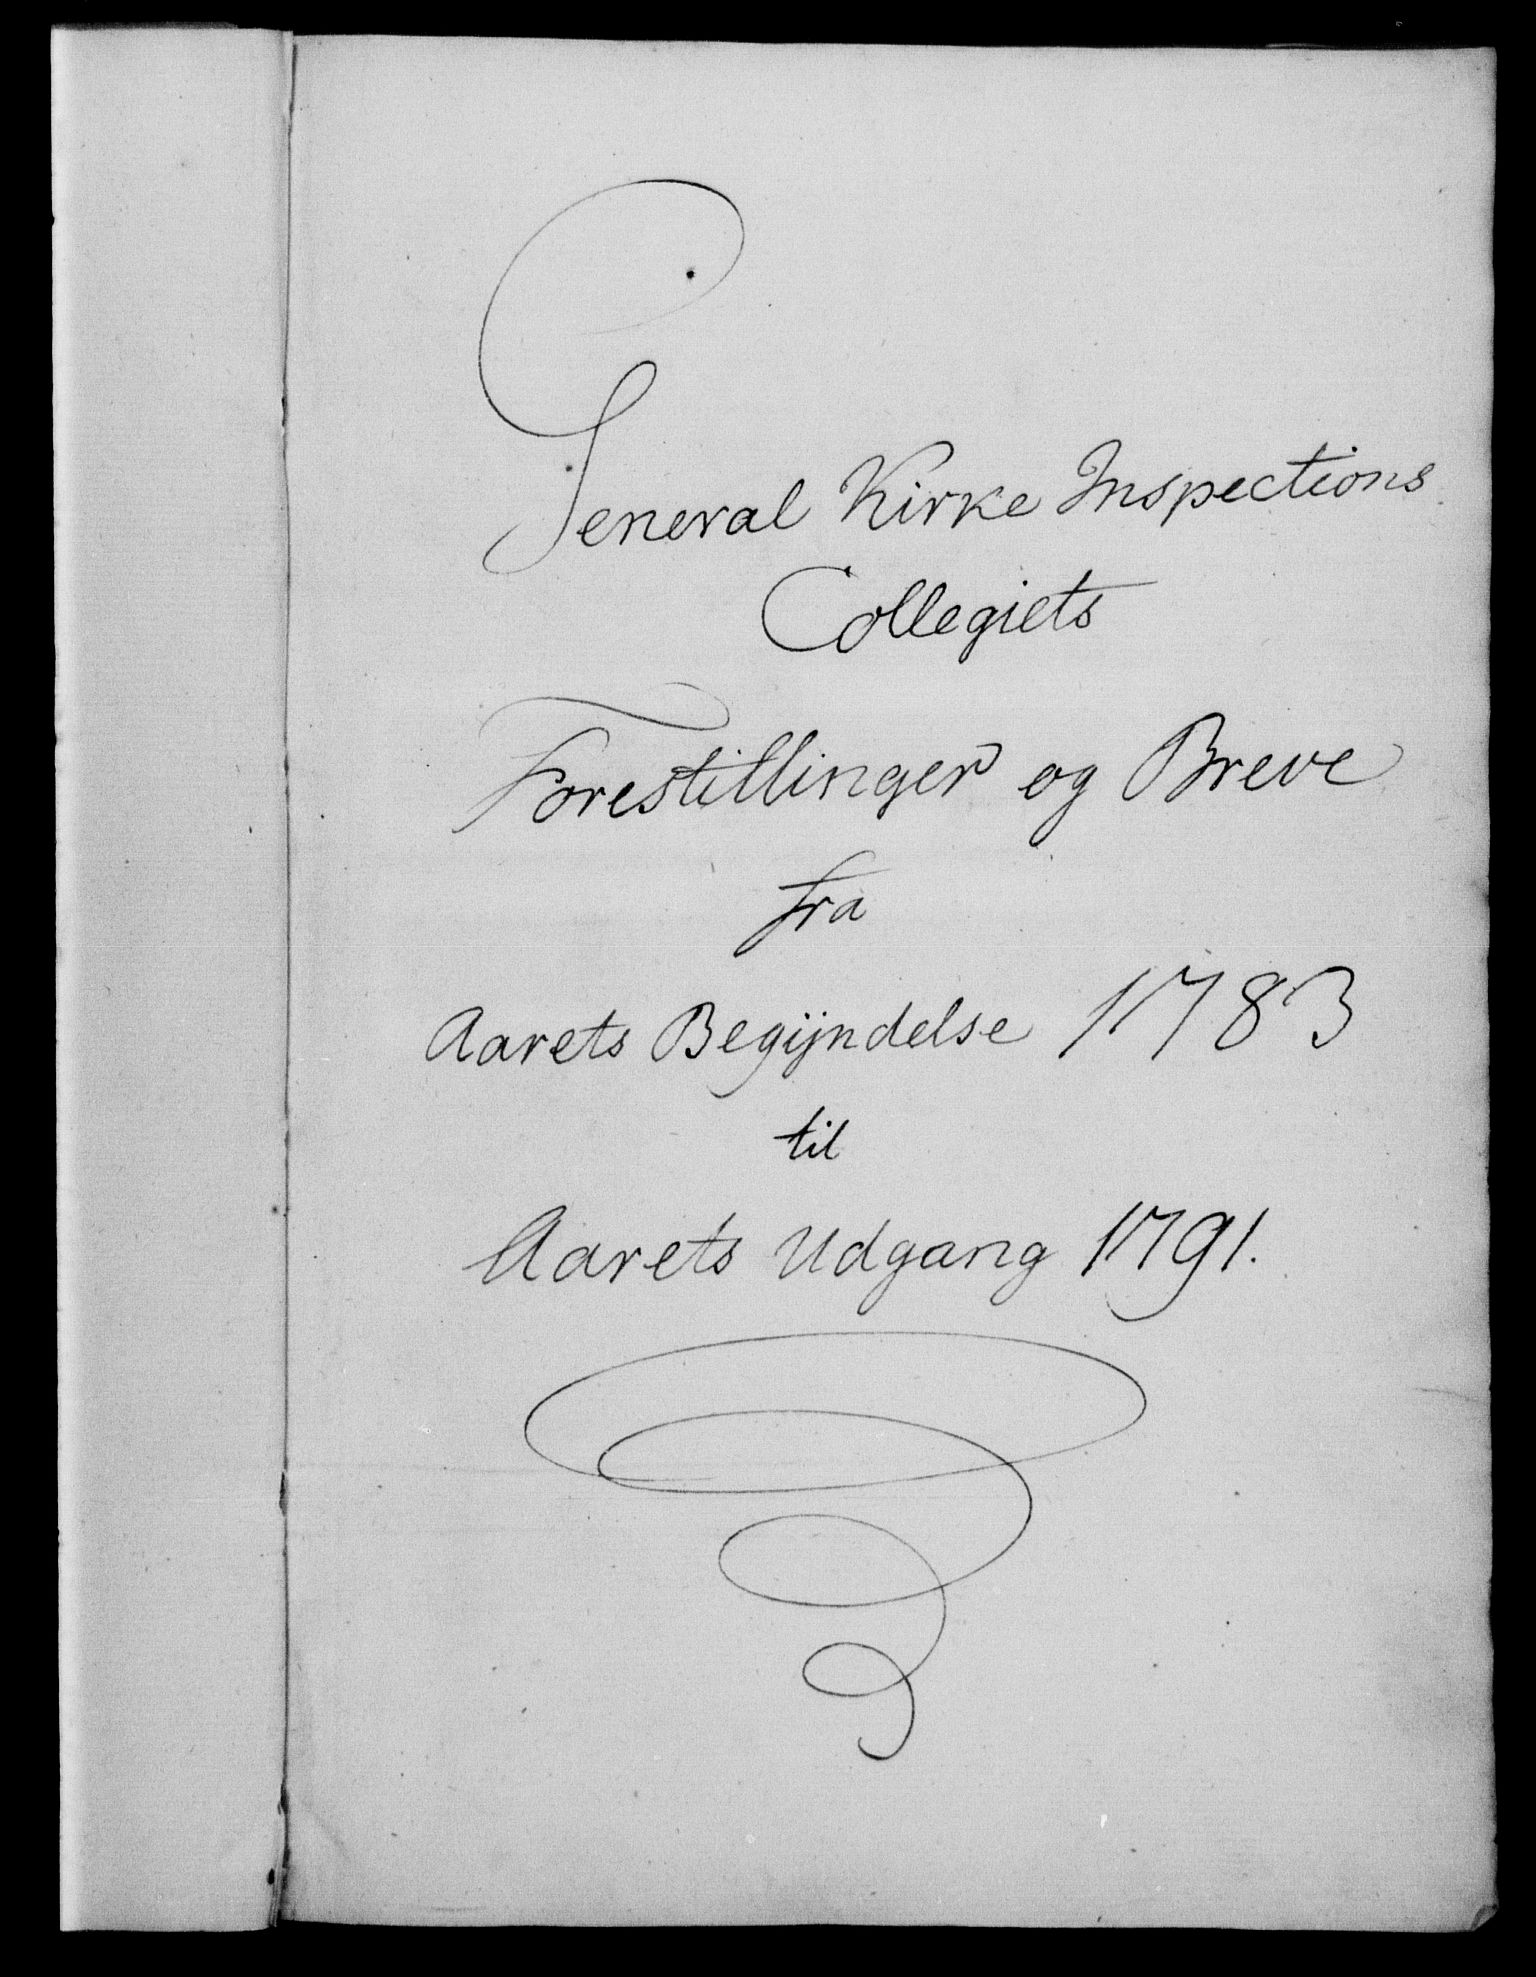 General Kirke Inspections
Collegiets
Forestillinger og Breve
fra
Aarets Begÿndelse 1783
til
Aarets Udgang 1791.